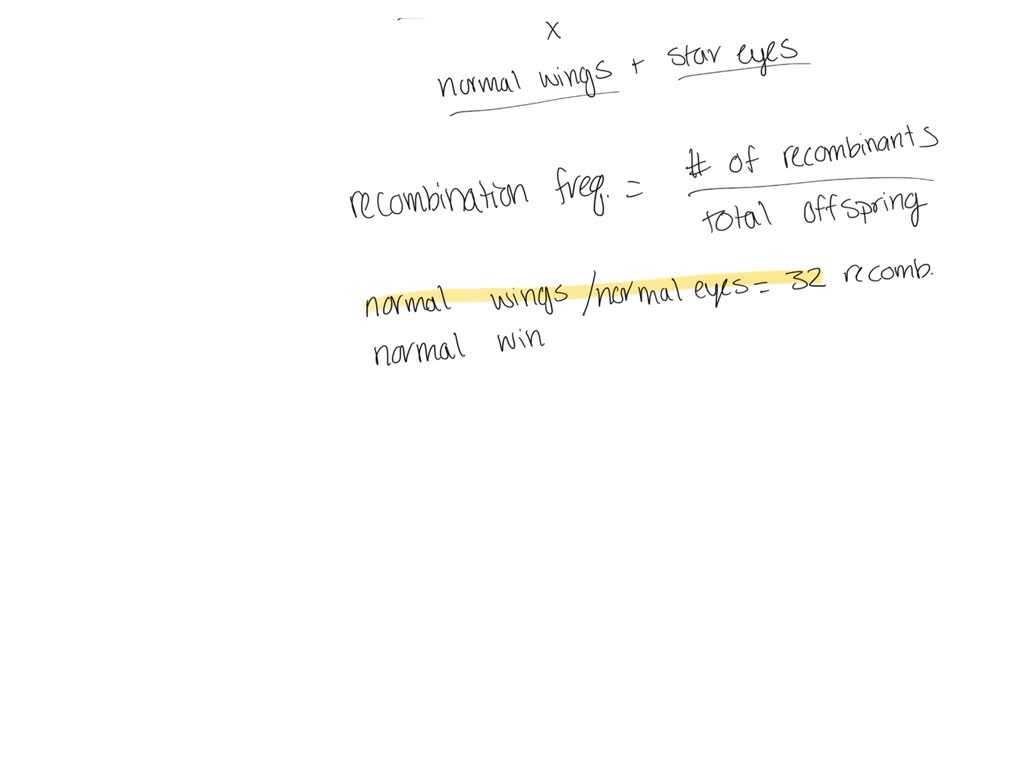 x
normal wings + star eyes
recombination freq. = # of recombinants
total offspring
normal wings / normal eyes = 32 recomb.
normal win